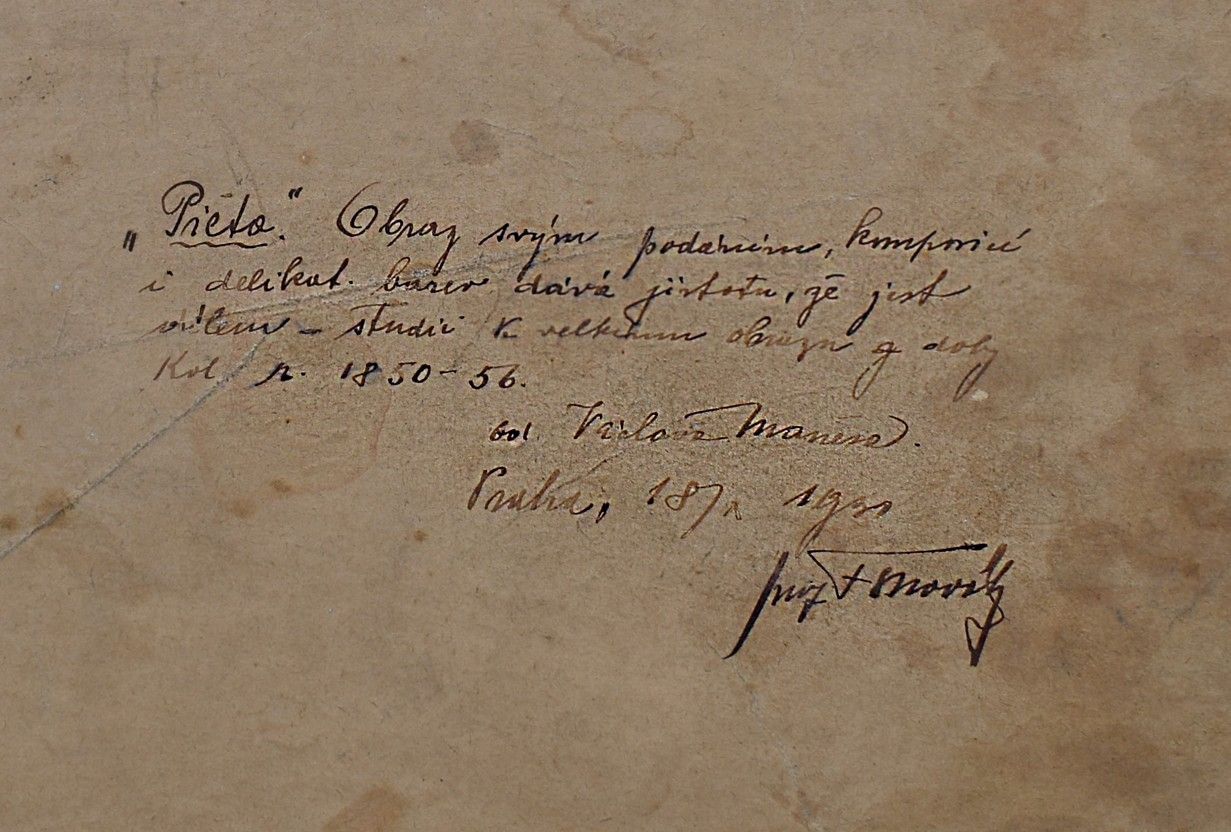 „Pieta". Obraz svým podáním, komposicí
i delikat. barev dává jistotu, že jest
dílem – studií k velkému obrazu z doby
kol r. 1850–56.
od Václava Mánesa.
Praha, 18/
Novák